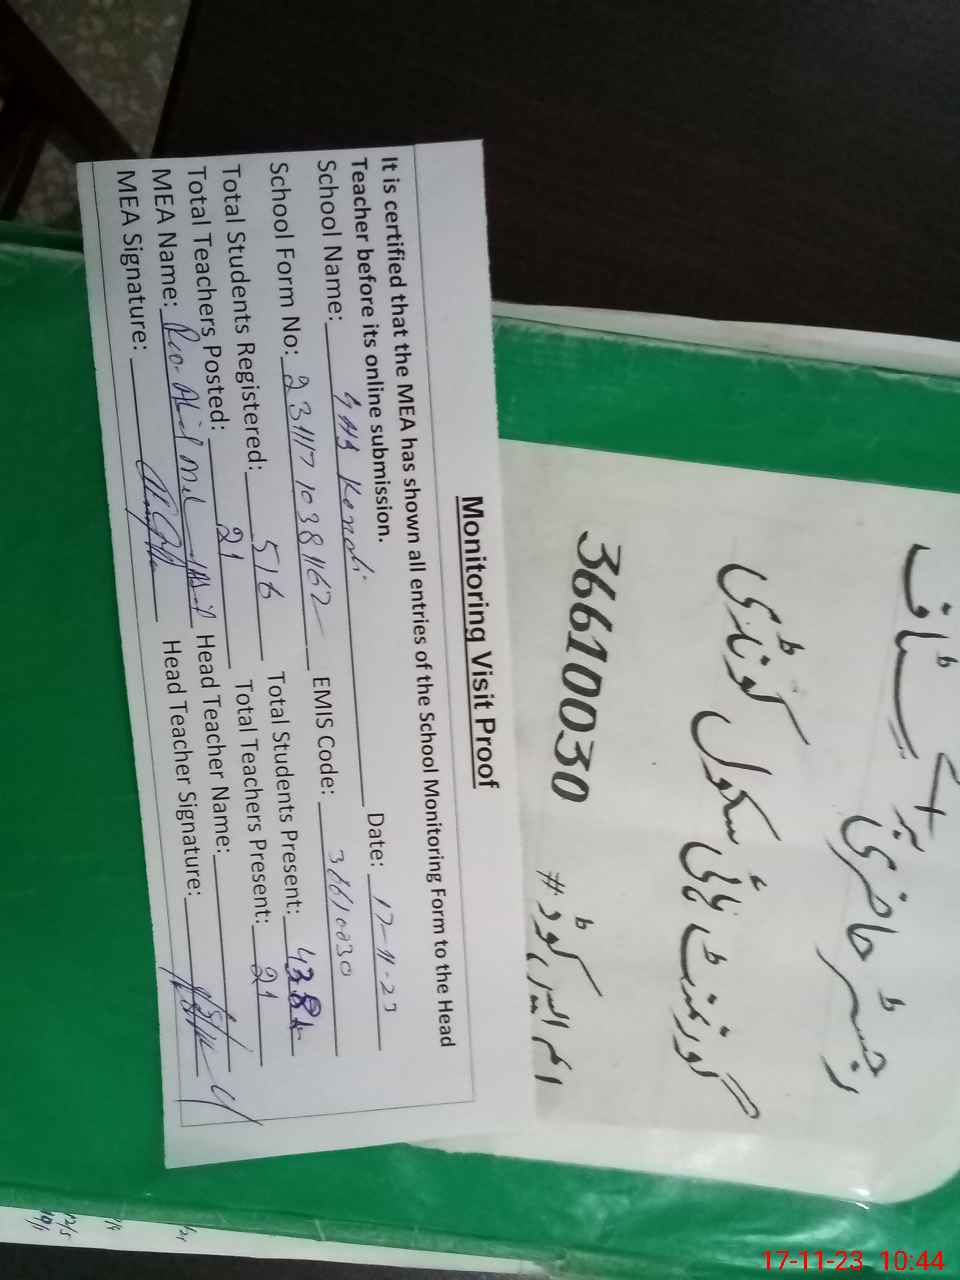 رجسٹر حاضری برائے سٹاف
گورنمنٹ ہائی سکول کوناڑی
ایم ایس کوڈ # 36610030
Monitoring Visit Proof
It is certified that the MEA has shown all entries of the School Monitoring Form to the Head
Teacher before its online submission.
School Name: GHS Date: 17-11-23
School Form No: EMIS Code: 36610030
Total Students Registered: 516 Total Students Present:
Total Teachers Posted: 21 Total Teachers Present: 21
MEA Name: Head Teacher Name:
MEA Signature: Head Teacher Signature:
17-11-23 10:44